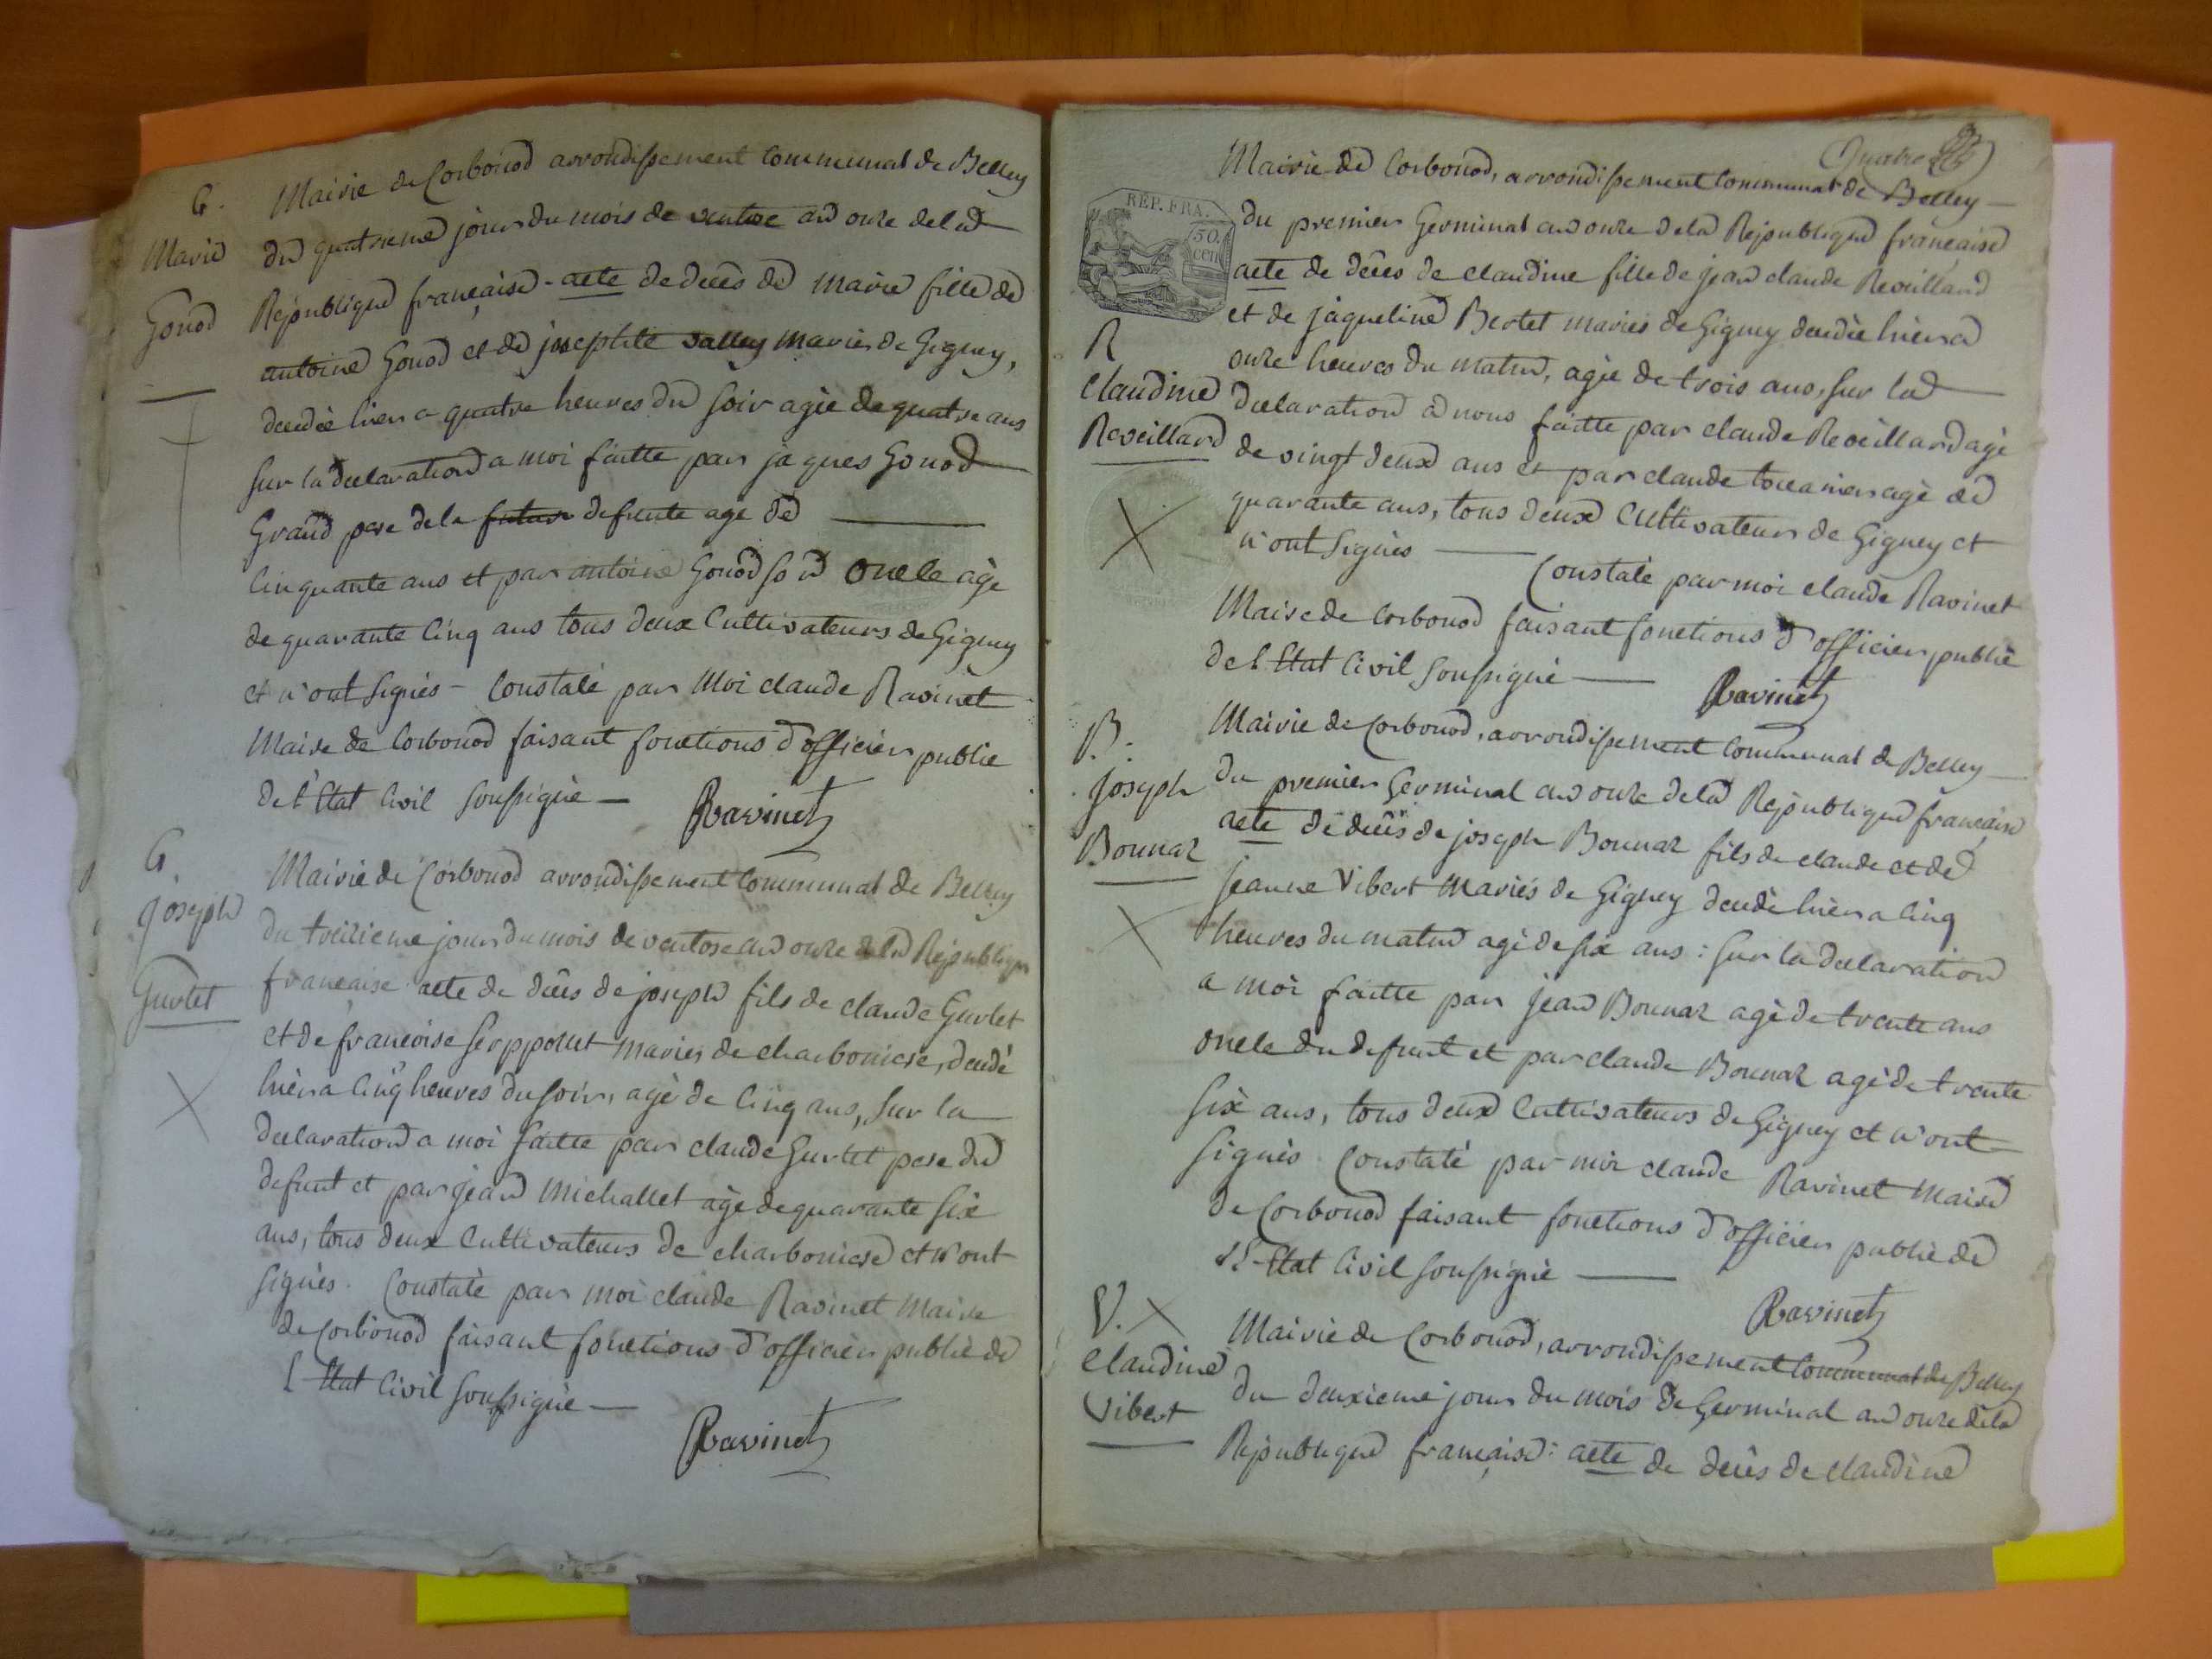 G.
Marie
Gonod
Mairie de Corbonod arrondissement Communal de Belley
du quatrieme jour du mois de ventose an onze de la
République française - acte de decès de marie fille de
antoine Gonod et de josephte valley mariés de Gigney,
decedée hier a quatre heures du soir agée de quatre ans
sur la declaration a moi faitte par jaques Gonod
Grand pere de la defunte agé de
Cinquante ans et par antoine Gonod oncle agé
de quarante Cinq ans tous deux Cultivateurs de Gigney
et n'ont signés - Constaté par Moi claude Ravinet
Maire de Corbonod faisant fonctions d'officier public
de l'Etat Civil soussigné -
Ravinet
G.
joseph
Gurlet
Mairie de Corbonod arrondissement Communal de Belley
du treizieme jour du mois de ventose an onze de la République
francaise acte de decès de joseph fils de claude Gurlet
et de francoise Serppollet mariés de charboniese, decedé
hier a Cinq heures du soir, agé de Cinq ans, sur la
declaration a moi faitte par claude Gurlet pere du
defunt et par jean Michallet agé de quarante six
ans, tous deux Cultivateurs de charboniese et n'ont
signés. Constaté par moi claude Ravinet Maire
de Corbonod faisant fonctions d'officier public de
l'Etat Civil soussigné -
Ravinet
Quatre
REP. FRA.
50.
cen
Mairie de Corbonod, arrondissement Communal de Belley -
du premier Germinal an onze de la République française
acte de decès de claudine fille de jean claude Reveillard
et de jaqueline Bertet mariés de Gigney decedée hier a
onze heures du matin, agée de trois ans, sur la
R
Claudine
Reveillard
declaration a nous faitte par claude Reveillard agé
de vingt deux ans et par claude agé de
quarante ans, tous deux Cultivateurs de Gigney et
n'ont signés - Constaté par moi claude Ravinet
Maire de Corbonod faisant fonctions d'officier public
de l'Etat Civil soussigné -
Ravinet
B.
joseph
Bonnaz
Mairie de Corbonod, arrondissement Communal de Belley -
du premier Germinal an onze de la République française
acte de decès de joseph Bonnaz fils de claude et de
jeanne Vibert Mariés de Gigney decedé hier a Cinq
heures du matin agé de six ans : sur la declaration
a moi faitte par jean Bonnaz agé de trente ans
oncle du defunt et par claude Bonnaz agé de trente
six ans, tous deux Cultivateurs de Gigney et n'ont
signés. Constaté par moi claude Ravinet Maire
de Corbonod faisant fonctions d'officier public de
l'Etat Civil soussigné -
Ravinet
V.
Claudine
Vibert
Mairie de Corbonod, arrondissement Communal de Belley
du deuxieme jour du mois de Germinal an onze de la
République française : acte de decès de claudine